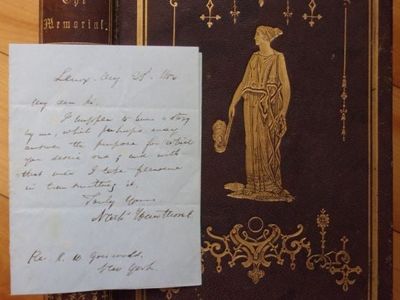 The
Memorial.
Lenox, Aug 28th, 1850
My dear Sir,
I happen to have a story
by me, which perhaps may
answer the purpose for which
you desire one; and with
that view I take pleasure
in transmitting it.
Truly Yours
Nathl Hawthorne.
Rev. R. W Griswold.
New York.